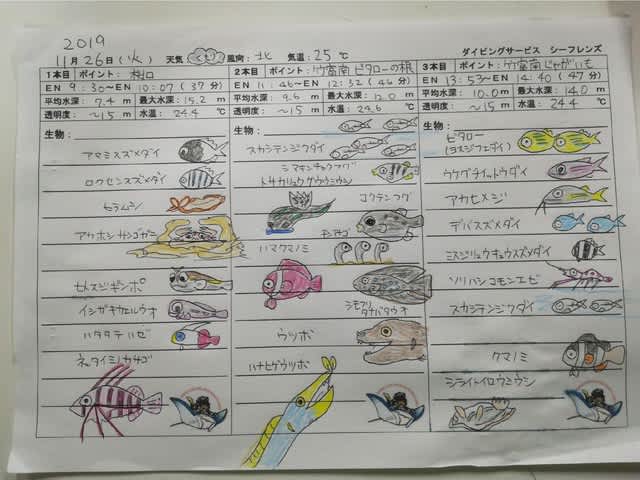 2019
11月26日(火) 天気 くもり 風向: 北 気温: 25 ℃ ダイビングサービス シーフレンズ
1本目 ポイント: 桟口
EN 9:30〜EN 10:07 (37分)
平均水深: 7.4 m 最大水深: 15.2 m
透明度: 〜15 m 水温: 24.4 ℃
生物:
アマミスズメダイ
ロクセンスズメダイ
ヒラムシ
アカホシサンゴガニ
ヒトスジギンポ
イシガキカエルウオ
ハタタテハゼ
ネッタイミノカサゴ
2本目 ポイント: 竹富南 ビタローの根
EN 11:46〜EN 12:32 (46分)
平均水深: 9.6 m 最大水深: 12.0 m
透明度: 〜15 m 水温: 24.6 ℃
生物:
スカシテンジクダイ
シマキンチャクフグ
トサカリュウグウウミウシ
コクテンフグ
チンアナゴ
ハマクマノミ
シモフリタナバタウオ
ウツボ
ハナヒゲウツボ
3本目 ポイント: 竹富南じゃがいも
EN 13:53〜EN 14:40 (47分)
平均水深: 10.0 m 最大水深: 14.0 m
透明度: 〜15 m 水温: 24.4 ℃
生物:
ビタロー
(ヨスジフエダイ)
ウケグチイットウダイ
アカヒメジ
デバスズメダイ
ミスジリュウキュウスズメダイ
ソリハシコモンエビ
スカシテンジクダイ
クマノミ
シライトイロウミウシ